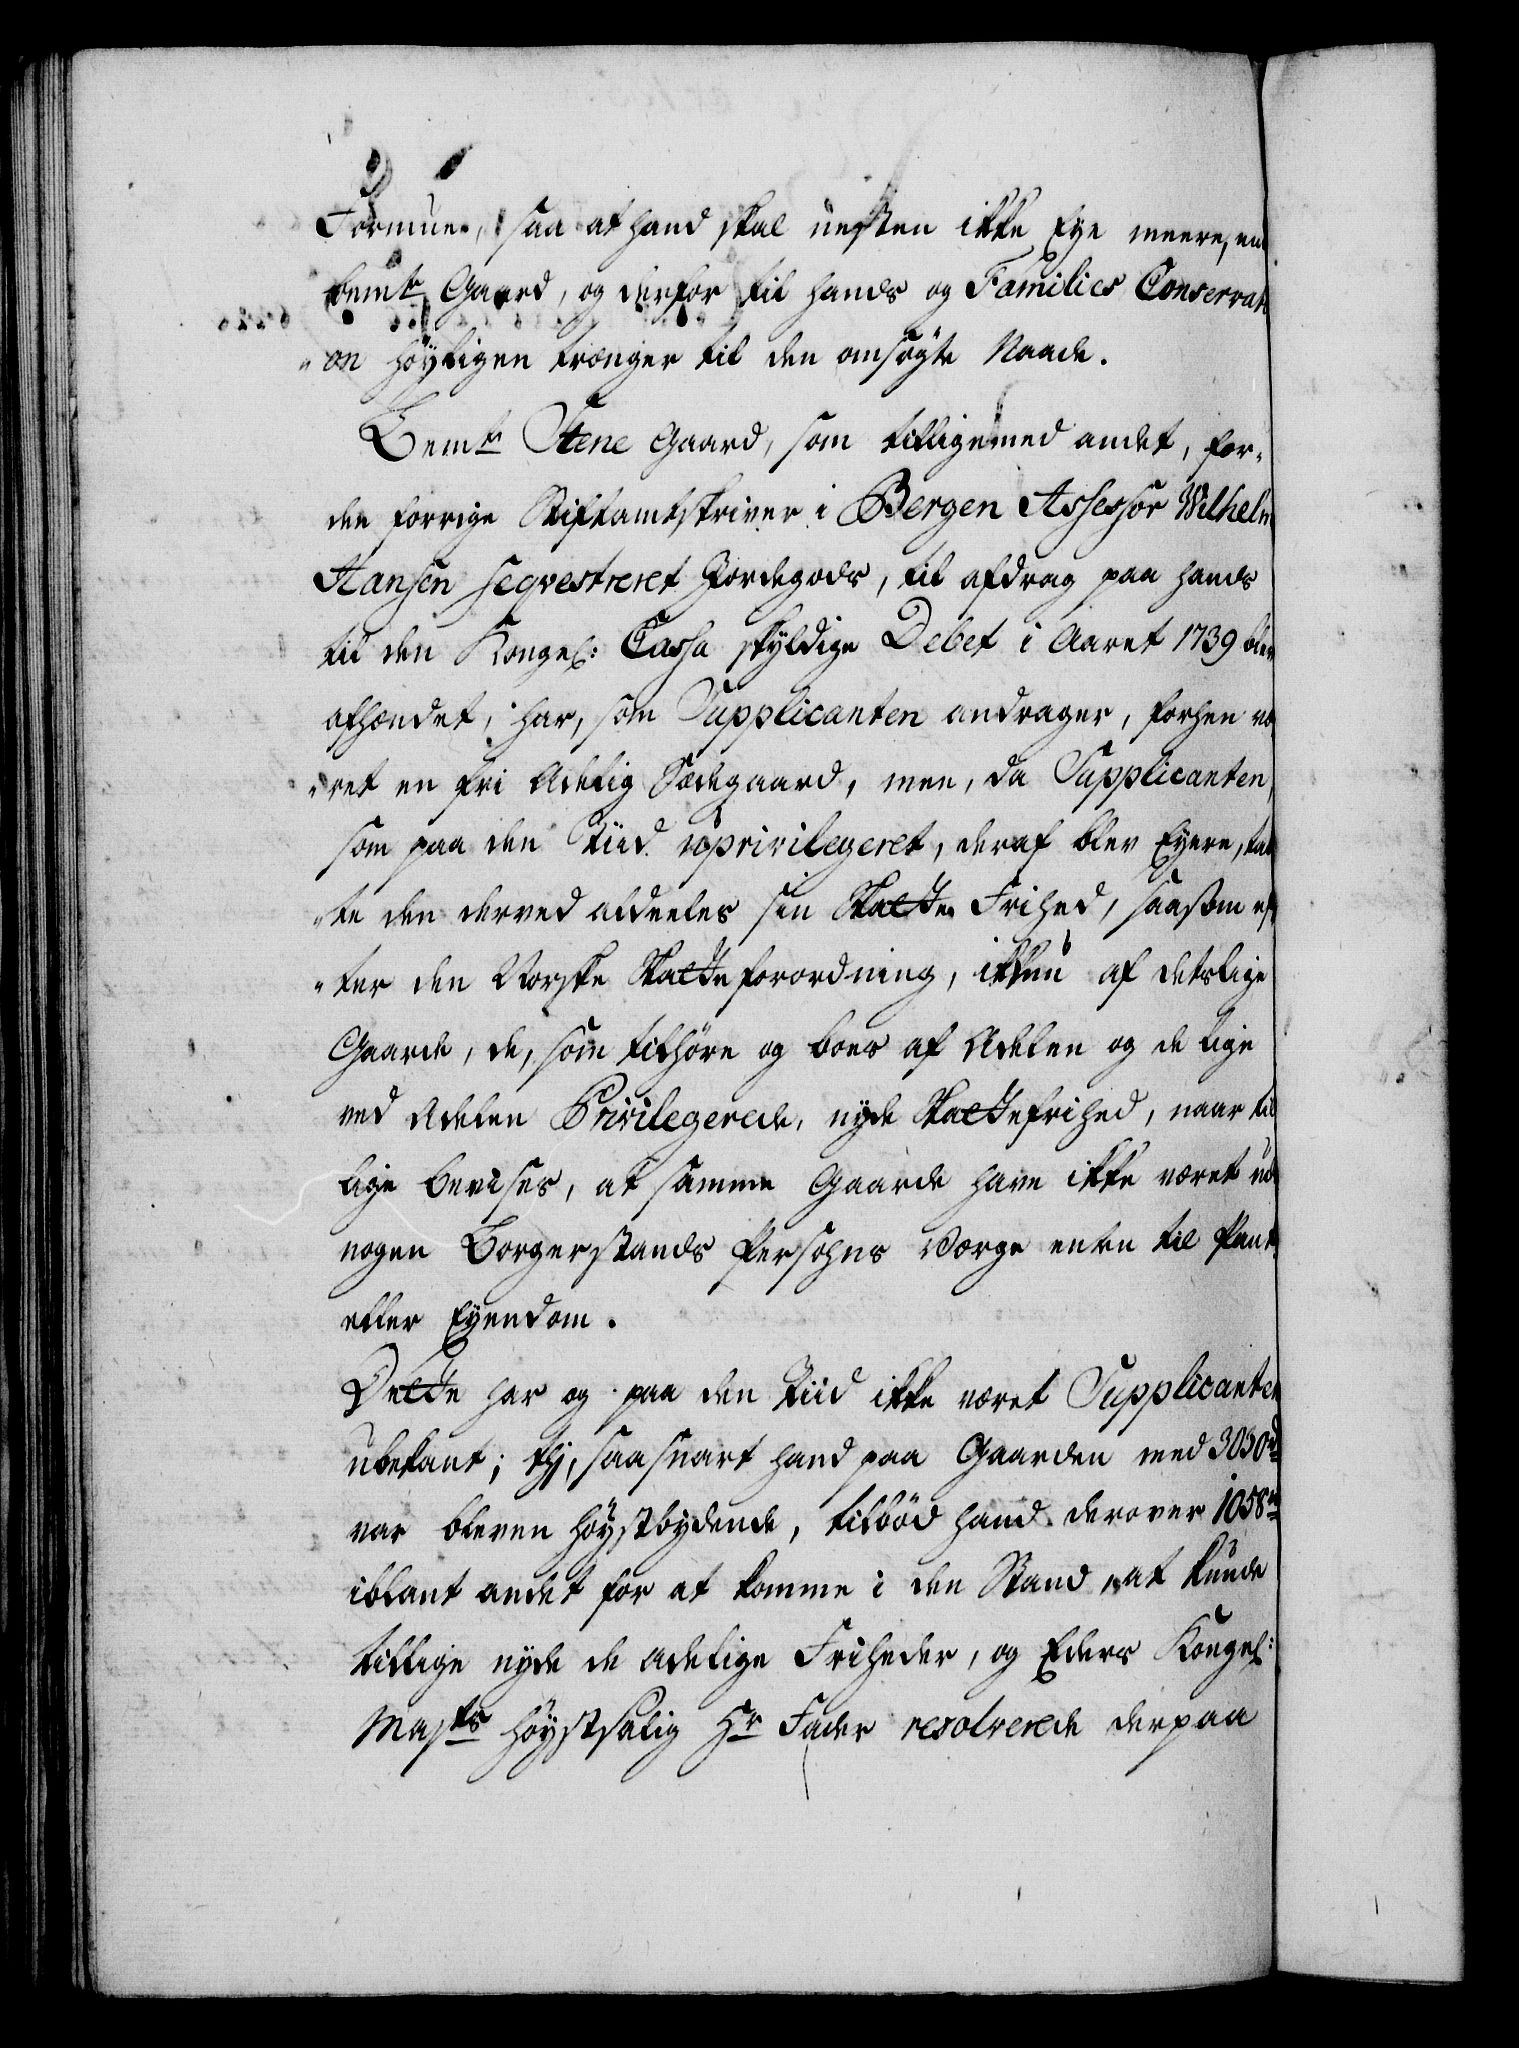 Formue, saa at hand skal næsten ikke Eye meere, en
bemte Gaard, og derfor til hands og Families Conservati
"on höyligen trænger til den ansøgte Naade.
Bemte Stene Gaard, som tilligemed andet, for-
den forrige Stiftamtskriver i Bergen Assessor Wilhelm
Hansen seqvestreret Jordegods, til afdrag paa hands
til den Kongel: Cassa skyldige Debet i Aaret 1739 blev
afhændet, har, som Supplicanten andrager, forhen væ
"ret en fri Adelig Sædegaard, men, da Supplicanten,
som paa den Tiid uprivilegeret, deraf blev Eyere, tab
"te den derved aldeeles sin Skatte Frihed, saasom ef
"ter den Norske Skatteforordning, ikkun af detslige
Gaarde, de, som tilhöre og boes af Adelen og de lige
ved Adelen Privilegerede, nyde Skattefrihed, naar til
lige bevises, at samme Gaarde have ikke været ud
nogen Borgerstands Persohns Værge enten til Pant
eller Eyendom.
Dette har og paa den Tiid ikke været Supplicanten
ubekant; thj, saasnart hand paa Gaarden med 3050 rd
var bleven höystbydende, tilböd hand derover 1058 rd
iblant andet for at komme i den Stand, at kunde
tillige nyde de adelige Friheder, og Eders Kongel:
Majts höystsalig Hr Fader resolverede derpaa